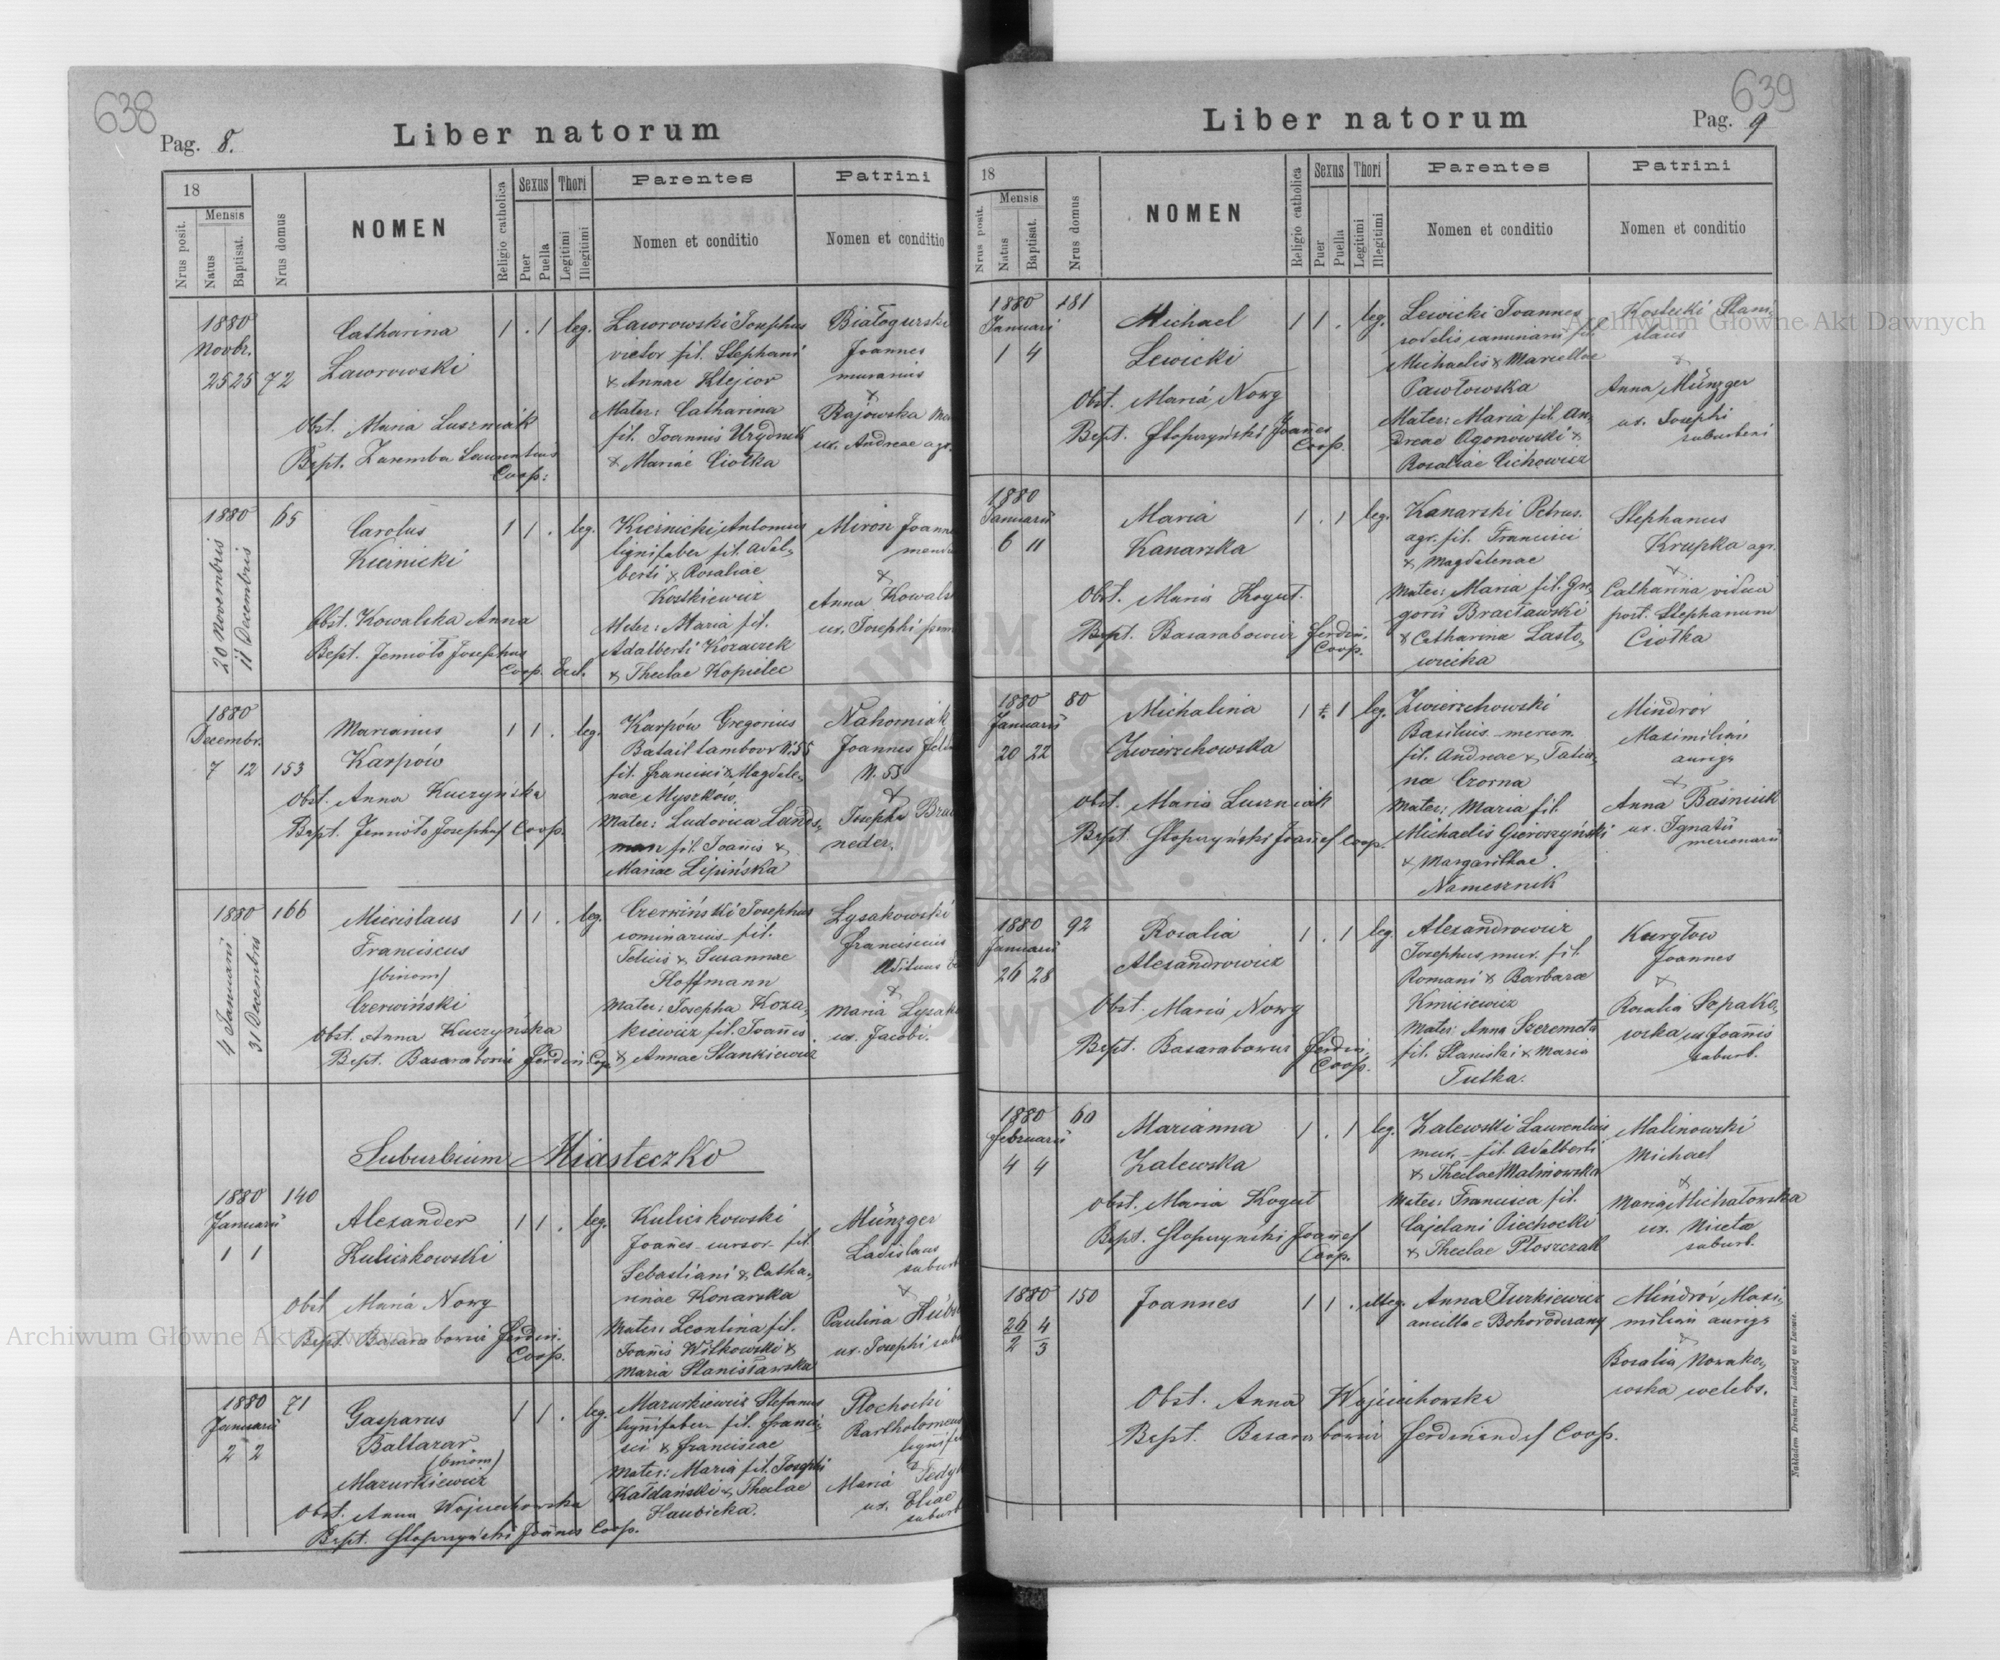 638
Pag. 8.
Liber natorum
18
Nrus posit.
Mensis
Natus
Baptisat.
Nrus domus
NOMEN
Religio catholica
Sexus
Puer
Puella
Thori
Legitimi
Illegitimi
Parentes
Nomen et conditio
Patrini
Nomen et conditio
1880
Novbr.
25 25 72
Catharina
Laworowski
1 . 1 leg.
Obst. Maria Luszniak
Bapt. Zaremba Laurentius
Coop:
Laworowski Josephus
victor fil. Stephani
& Annae Klejcor
Mater: Catharina
fil. Joannis Urydnik
& Mariae Ciotka
Białogurski
Joannes
murarius
&
Rajowska
ux. Andreae agr.
1880 65
20 Novembris
11 Decembris
Carolus
Kiernicki
1 1 . leg.
Obst. Kowalska Anna
Bapt. Jemioło Josephus
Coop. Exc.
Kiernicki Antonius
lignifaber fil. Adal-
berti & Rosaliae
Kostkiewicz
Mater: Maria fil.
Adalberti Kozaczek
& Theclae Kopielec
Miron Joann
&
Anna Kowals
ux. Josephi
1880
Decembr.
7 12 153
Marianus
Karpów
1 1 . leg.
Obst. Anna Kuczyńska
Bapt. Jemioło Josephus Coop.
Karpów Gregorius
Batail tambour N. 55
fil. Francisci & Magdale-
nae Myszków.
Mater: Ludovica Lands-
man fil. Joanis &
Mariae Lipińska
Nahorniak
Joannes
N. 55
&
Josepha
neder.
1880 166
4 Januarii
31 Decembris
Miecislaus
Franciscus
(binom)
Czerwiński
1 1 . leg.
Obst. Anna Kuczyńska
Bapt. Basarabowicz Ferdin. Coop.
Czerwiński Josephus
fil.
Felicis & Susannae
Hoffmann
Mater: Josepha Koza-
kiewicz fil. Joannis
& Annae Stankiewicz
Łysakowski
Franciscus
&
Maria Łysak
ux. Jacobi.
Suburbium Miasteczko
1880 140
Januarii
1 1
Alexander
Kuliczkowski
1 1 . leg.
Obst. Maria Nowy
Bapt. Basarabowicz Ferdin.
Coop.
Kuliczkowski
Joannes cursor fil.
Sebastiani & Catha-
rinae Konarska
Mater: Leontina fil.
Joannis Witkowski &
Maria Stanisławska
Münzger
Ladislaus
suburb
&
Paulina Hübn
ux. Josephi sub
1880 71
Januarii
2 2
Gasparus
Baltazar
(binom)
Mazurkiewicz
1 1 . leg.
Obst. Anna Wojciechowska
Bapt. Stopczyński Joannes Coop.
Mazurkiewicz Stefanus
lignifaber fil. Franci-
sci & Franciscae
Mater: Maria fil. Josephi
Kałdański & Theclae
Hawicka.
Płochocki
Bartholomeus
lignifa
&
Maria Fedyk
ux. Eliae
suburb
639
Pag. 9
Liber natorum
18
Nrus posit.
Mensis
Natus
Baptisat.
Nrus domus
NOMEN
Religio catholica
Sexus
Puer
Puella
Thori
Legitimi
Illegitimi
Parentes
Nomen et conditio
Patrini
Nomen et conditio
1880 181
Januarii
1 4
Michael
Lewicki
1 1 . leg.
Obst. Maria Nowy
Bapt. Stopczyński Joannes
Coop.
Lewicki Joannes
Michaelis & Mariellae
Pawłowska
Mater: Maria fil. An-
dreae Ogonowski &
Rosaliae Cichowicz
Kostecki Stani-
slaus
&
Anna Münzger
ux. Josephi
suburbani
1880
Januarii
6 11
Maria
Kanarska
1 . 1 leg.
Obst. Maria Kogut.
Bapt. Basarabowicz Ferdin.
Coop.
Kanarski Petrus
agr. fil. Francisci
& Magdalenae
Mater: Maria fil. Gre-
gorii Bracławski
& Catharina Lasto-
wiecka
Stephanus
Krupka agr.
&
Catharina vidua
post. Stephanum
Ciotka
1880 80
Januarii
20 22
Michalina
Zwierzchowska
1 . 1 leg.
Obst. Maria Luszniak
Bapt. Stopczyński Joannes Coop.
Zwierzchowski
Basilius mercen.
fil. Andreae & Tatia-
nae Czorna
Mater: Maria fil.
Michaelis Gieroszyński
& Margarithae
Namesznik
Mindror
Maximilian
auriga
&
Anna Baśniuk
ux. Ignatii
mercenarii
1880 92
Januarii
26 28
Rosalia
Alexandrowicz
1 . 1 leg.
Obst. Maria Nowy
Bapt. Basarabowicz Ferdin.
Coop.
Alexandrowicz
Josephus mur. fil.
Romani & Barbara
Kmiciewicz
Mater: Anna Szeremeta
fil. Stanislai & Maria
Tutka.
Kuryłow
Joannes
&
Rosalia Sopatko-
wska ux Joannis
suburb.
1880 60
Februarii
4 4
Marianna
Zalewska
1 . 1 leg.
Obst. Maria Kogut
Bapt. Stopczyński Joannes
Coop.
Zalewski Laurentius
mur. fil. Adalberti
& Theclae Malinowska
Mater: Francisca fil.
Cajetani Piechocki
& Theclae Płoszczak
Malinowski
Michael
&
Maria Michałowska
ux. Nicetae
suburb.
1880 150
26/2 4/3
Joannes
1 1 . illeg.
Obst. Anna Wojciechowska
Bapt. Basarabowicz Ferdinandus Coop.
Anna Turkiewicz
ancilla e Bohorodczany
Mindror Maxi-
milian auriga
&
Rosalia Nowako-
wska coelebs.
Nakładem Drukarni Ludowej we Lwowie.
Archiwum Główne Akt Dawnych
Archiwum Główne Akt Dawnych